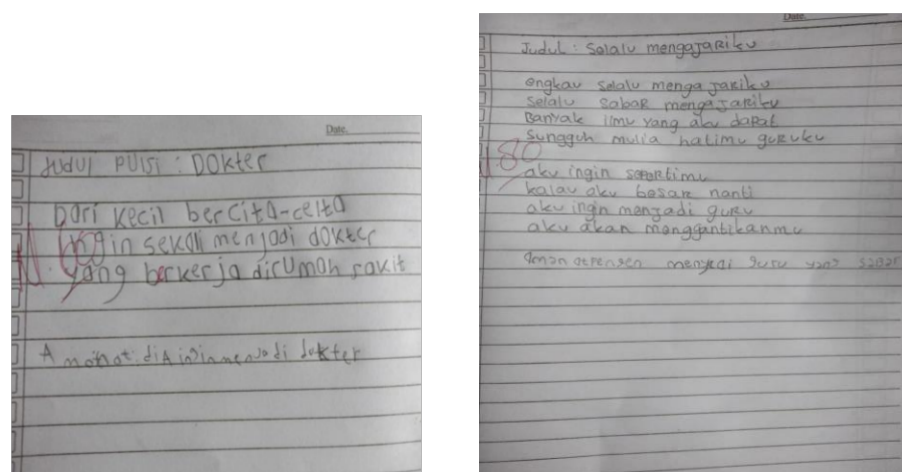 Date.
Judul PUISI : DOKter
Dari kecil bercita-ceita
ingin sekali menjadi dokter
yang berkerja dirumah sakit
Amanat: diA inginmenjadi dokter
Date.
Judul : Selalu mengajariku
engkau selalu mengajariku
selalu sabar mengajariku
Banyak ilmu yang aku dapat
sungguh mulia hatimu guruku
80
aku ingin sepertimu
kalau aku besar nanti
aku ingin menjadi guru
aku akan menggantikanmu
menjadi guru yang sabar